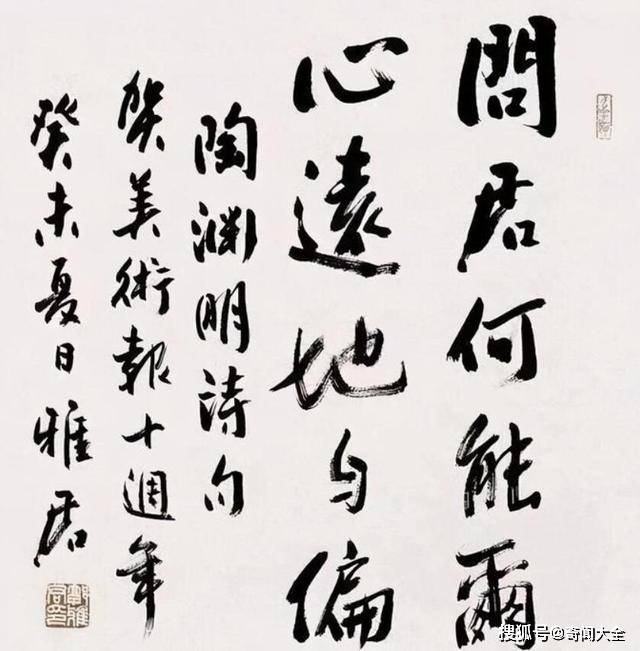 問君何能爾
心遠地自偏
陶渊明詩句
贺美術報十週年
癸未夏日雅君
搜狐号@奇闻大全